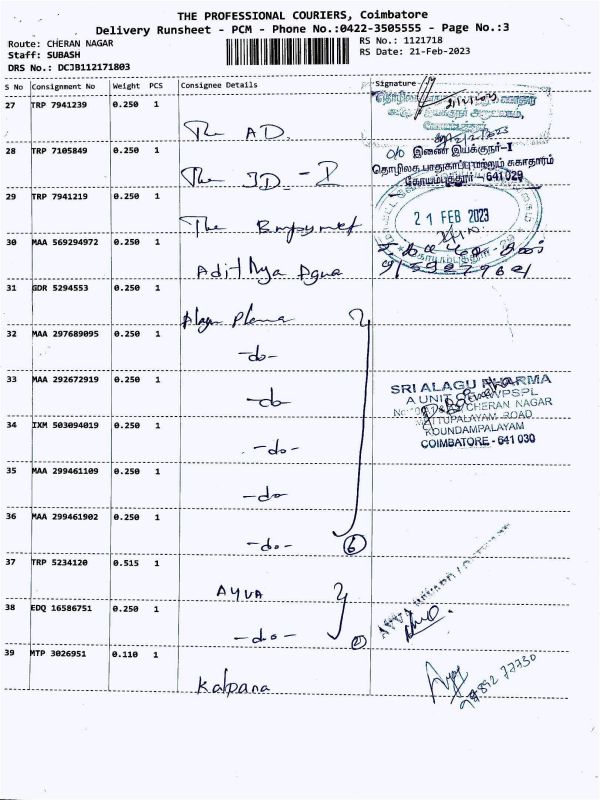 THE PROFESSIONAL COURIERS, Coimbatore
Delivery Runsheet - PCM - Phone No.:0422-3505555 - Page No.:3
Route: CHERAN NAGAR
Staff: SUBASH
DRS No.: DCJB112171803
RS No.: 1121718
RS Date: 21-Feb-2023
S No Consignment No Weight PCS Consignee Details Signature
27 TRP 7941239 0.250 1
The AD.
28 TRP 7105849 0.250 1
The JD - I
இணை இயக்குநர்-I
தொழிலக பாதுகாப்பு மற்றும் சுகாதாரம்
கோயம்புத்தூர் - 641 029
29 TRP 7941219 0.250 1
The
21 FEB 2023
30 MAA 569294972 0.250 1
Adithya
31 GDR 5294553 0.250 1
Alagu
32 MAA 297689095 0.250 1
-do-
33 MAA 292672919 0.250 1
-do
SRI ALAGU PHARMA
A UNIT OF
CHERAN NAGAR
METTUPALAYAM ROAD
KOUNDAMPALAYAM
COIMBATORE - 641 030
34 IXM 503094019 0.250 1
-do-
35 MAA 299461109 0.250 1
-do
36 MAA 299461902 0.250 1
-do- 6
37 TRP 5234120 0.515 1
AYUA
38 EDQ 16586751 0.250 1
-do- 2
39 MTP 3026951 0.110 1
Kalpana